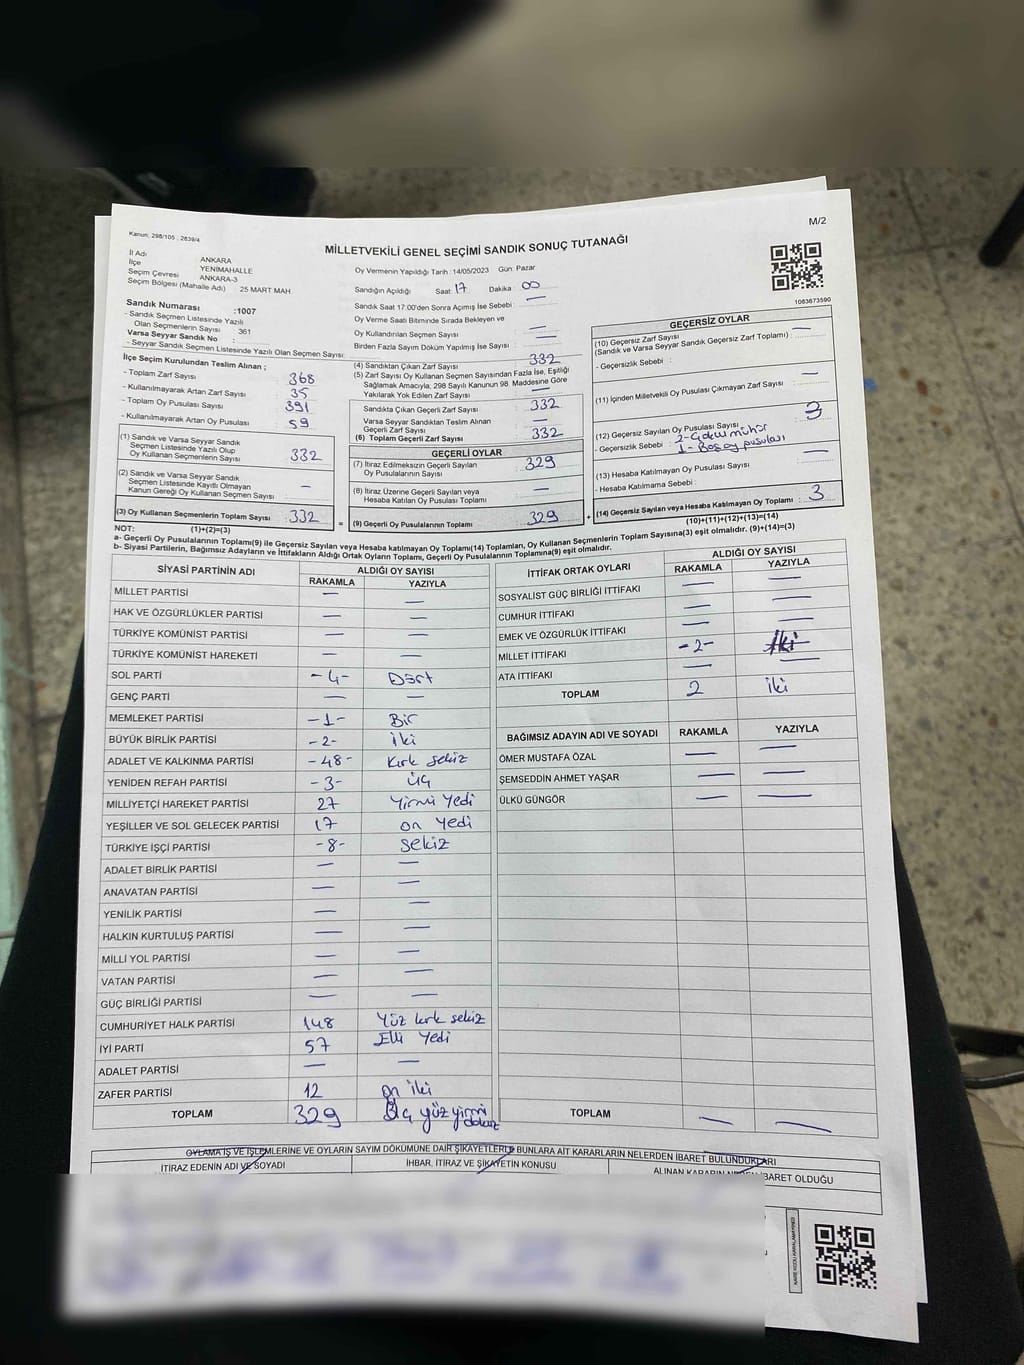 M/2
Kanun: 298/105 , 2839/4
MİLLETVEKİLİ GENEL SEÇİMİ SANDIK SONUÇ TUTANAĞI
1083673590
İl Adı ANKARA
İlçe YENİMAHALLE
Seçim Çevresi ANKARA-3
Seçim Bölgesi (Mahalle Adı) 25 MART MAH
Sandık Numarası :1007
- Sandık Seçmen Listesinde Yazılı
Olan Seçmenlerin Sayısı : 361
Varsa Seyyar Sandık No :
- Seyyar Sandık Seçmen Listesinde Yazılı Olan Seçmen Sayısı:
Oy Vermenin Yapıldığı Tarih :14/05/2023 Gün: Pazar
Sandığın Açıldığı Saat: 17 Dakika : 00
Sandık Saat 17:00'den Sonra Açımış İse Sebebi : —
Oy Verme Saati Bitiminde Sırada Bekleyen ve
Oy Kullandırılan Seçmen Sayısı : —
Birden Fazla Sayım Döküm Yapılmış İse Sayısı : —
İlçe Seçim Kurulundan Teslim Alınan ;
- Toplam Zarf Sayısı : 368
- Kullanılmayarak Artan Zarf Sayısı : 35
- Toplam Oy Pusulası Sayısı : 391
- Kullanılmayarak Artan Oy Pusulası : 59
(1) Sandık ve Varsa Seyyar Sandık
Seçmen Listesinde Yazılı Olup
Oy Kullanan Seçmenlerin Sayısı : 332
(2) Sandık ve Varsa Seyyar Sandık
Seçmen Listesinde Kayıtlı Olmayan
Kanun Gereği Oy Kullanan Seçmen Sayısı : —
(3) Oy Kullanan Seçmenlerin Toplam Sayısı : 332
(1)+(2)=(3)
(4) Sandıktan Çıkan Zarf Sayısı : 332
(5) Zarf Sayısı Oy Kullanan Seçmen Sayısından Fazla İse, Eşitliği
Sağlamak Amacıyla, 298 Sayılı Kanunun 98. Maddesine Göre
Yakılarak Yok Edilen Zarf Sayısı : —
Sandıkta Çıkan Geçerli Zarf Sayısı : 332
Varsa Seyyar Sandıktan Teslim Alınan
Geçerli Zarf Sayısı : —
(6) Toplam Geçerli Zarf Sayısı : 332
GEÇERLİ OYLAR
(7) İtiraz Edilmeksizin Geçerli Sayılan
Oy Pusulalarının Sayısı : 329
(8) İtiraz Üzerine Geçerli Sayılan veya
Hesaba Katılan Oy Pusulası Toplamı : —
= (9) Geçerli Oy Pusulalarının Toplamı : 329
GEÇERSİZ OYLAR
(10) Geçersiz Zarf Sayısı
(Sandık ve Varsa Seyyar Sandık Geçersiz Zarf Toplamı) : —
- Geçersizlik Sebebi :
(11) İçinden Milletvekili Oy Pusulası Çıkmayan Zarf Sayısı : —
(12) Geçersiz Sayılan Oy Pusulası Sayısı : 3
- Geçersizlik Sebebi : 2-Çoklu mühür
1- Boş oy pusulası
(13) Hesaba Katılmayan Oy Pusulası Sayısı : —
- Hesaba Katılmama Sebebi :
+ (14) Geçersiz Sayılan veya Hesaba Katılmayan Oy Toplamı : 3
(10)+(11)+(12)+(13)=(14)
NOT:
a- Geçerli Oy Pusulalarının Toplamı(9) ile Geçersiz Sayılan veya Hesaba katılmayan Oy Toplamı(14) Toplamları, Oy Kullanan Seçmenlerin Toplam Sayısına(3) eşit olmalıdır. (9)+(14)=(3)
b- Siyasi Partilerin, Bağımsız Adayların ve İttifakların Aldığı Ortak Oyların Toplamı, Geçerli Oy Pusulalarının Toplamına(9) eşit olmalıdır.
SİYASİ PARTİNİN ADI ALDIĞI OY SAYISI
RAKAMLA YAZIYLA
MİLLET PARTİSİ — —
HAK VE ÖZGÜRLÜKLER PARTİSİ — —
TÜRKİYE KOMÜNİST PARTİSİ — —
TÜRKİYE KOMÜNİST HAREKETİ — —
SOL PARTİ -4- Dört
GENÇ PARTİ — —
MEMLEKET PARTİSİ -1- Bir
BÜYÜK BİRLİK PARTİSİ -2- iki
ADALET VE KALKINMA PARTİSİ -48- Kırk sekiz
YENİDEN REFAH PARTİSİ -3- üç
MİLLİYETÇİ HAREKET PARTİSİ 27 Yirmi Yedi
YEŞİLLER VE SOL GELECEK PARTİSİ 17 on Yedi
TÜRKİYE İŞÇİ PARTİSİ -8- sekiz
ADALET BİRLİK PARTİSİ — —
ANAVATAN PARTİSİ — —
YENİLİK PARTİSİ — —
HALKIN KURTULUŞ PARTİSİ — —
MİLLİ YOL PARTİSİ — —
VATAN PARTİSİ — —
GÜÇ BİRLİĞİ PARTİSİ — —
CUMHURİYET HALK PARTİSİ 148 Yüz kırk sekiz
İYİ PARTİ 57 Elli Yedi
ADALET PARTİSİ — —
ZAFER PARTİSİ 12 on iki
TOPLAM 329 Üç yüz yirmi dokuz
İTTİFAK ORTAK OYLARI ALDIĞI OY SAYISI
RAKAMLA YAZIYLA
SOSYALİST GÜÇ BİRLİĞİ İTTİFAKI — —
CUMHUR İTTİFAKI — —
EMEK VE ÖZGÜRLÜK İTTİFAKI — —
MİLLET İTTİFAKI -2- iki
ATA İTTİFAKI — —
TOPLAM 2 iki
BAĞIMSIZ ADAYIN ADI VE SOYADI RAKAMLA YAZIYLA
ÖMER MUSTAFA ÖZAL — —
ŞEMSEDDİN AHMET YAŞAR — —
ÜLKÜ GÜNGÖR — —
TOPLAM — —
OYLAMA İŞ VE İŞLEMLERİNE VE OYLARIN SAYIM DÖKÜMÜNE DAİR ŞİKAYETLERLE BUNLARA AİT KARARLARIN NELERDEN İBARET BULUNDUKLARI
İTİRAZ EDENİN ADI VE SOYADI İHBAR, İTİRAZ VE ŞİKAYETİN KONUSU ALINAN KARARIN NEDEN İBARET OLDUĞU